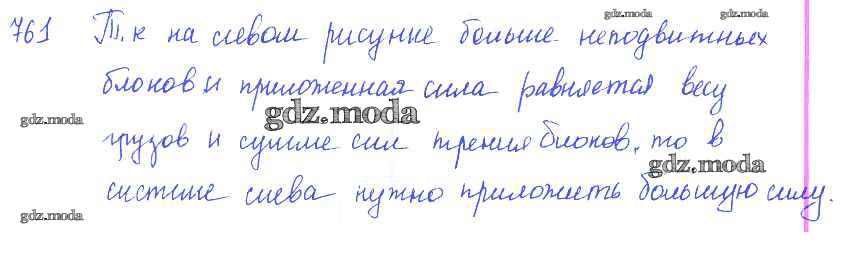 gdz.moda gdz.moda
761 Т.к на левом рисунке больше неподвижных
блоков и приложенная сила равняется весу
gdz.moda gdz.moda
грузов и сумме сил трения блоков, то в
gdz.moda
системе слева нужно приложить большую силу.
gdz.moda